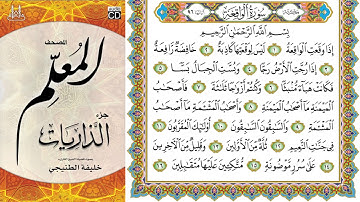 CD
المصحف
المعلم
جزء
الذاريات
خليفة الطنيجي
سورة الواقعة
بسم الله الرحمن الرحيم
إذا وقعت الواقعة ١ ليس لوقعتها كاذبة ٢ خافضة رافعة ٣
إذا رجت الأرض رجا ٤ وبست الجبال بسا ٥
فكانت هباء منبثا ٦ وكنتم أزواجا ثلاثة ٧ فأصحاب
الميمنة ما أصحاب الميمنة ٨ وأصحاب المشئمة ما أصحاب
المشئمة ٩ والسابقون السابقون ١٠ أولئك المقربون ١١
في جنات النعيم ١٢ ثلة من الأولين ١٣ وقليل من الآخرين
١٤ على سرر موضونة ١٥ متكئين عليها متقابلين ١٦